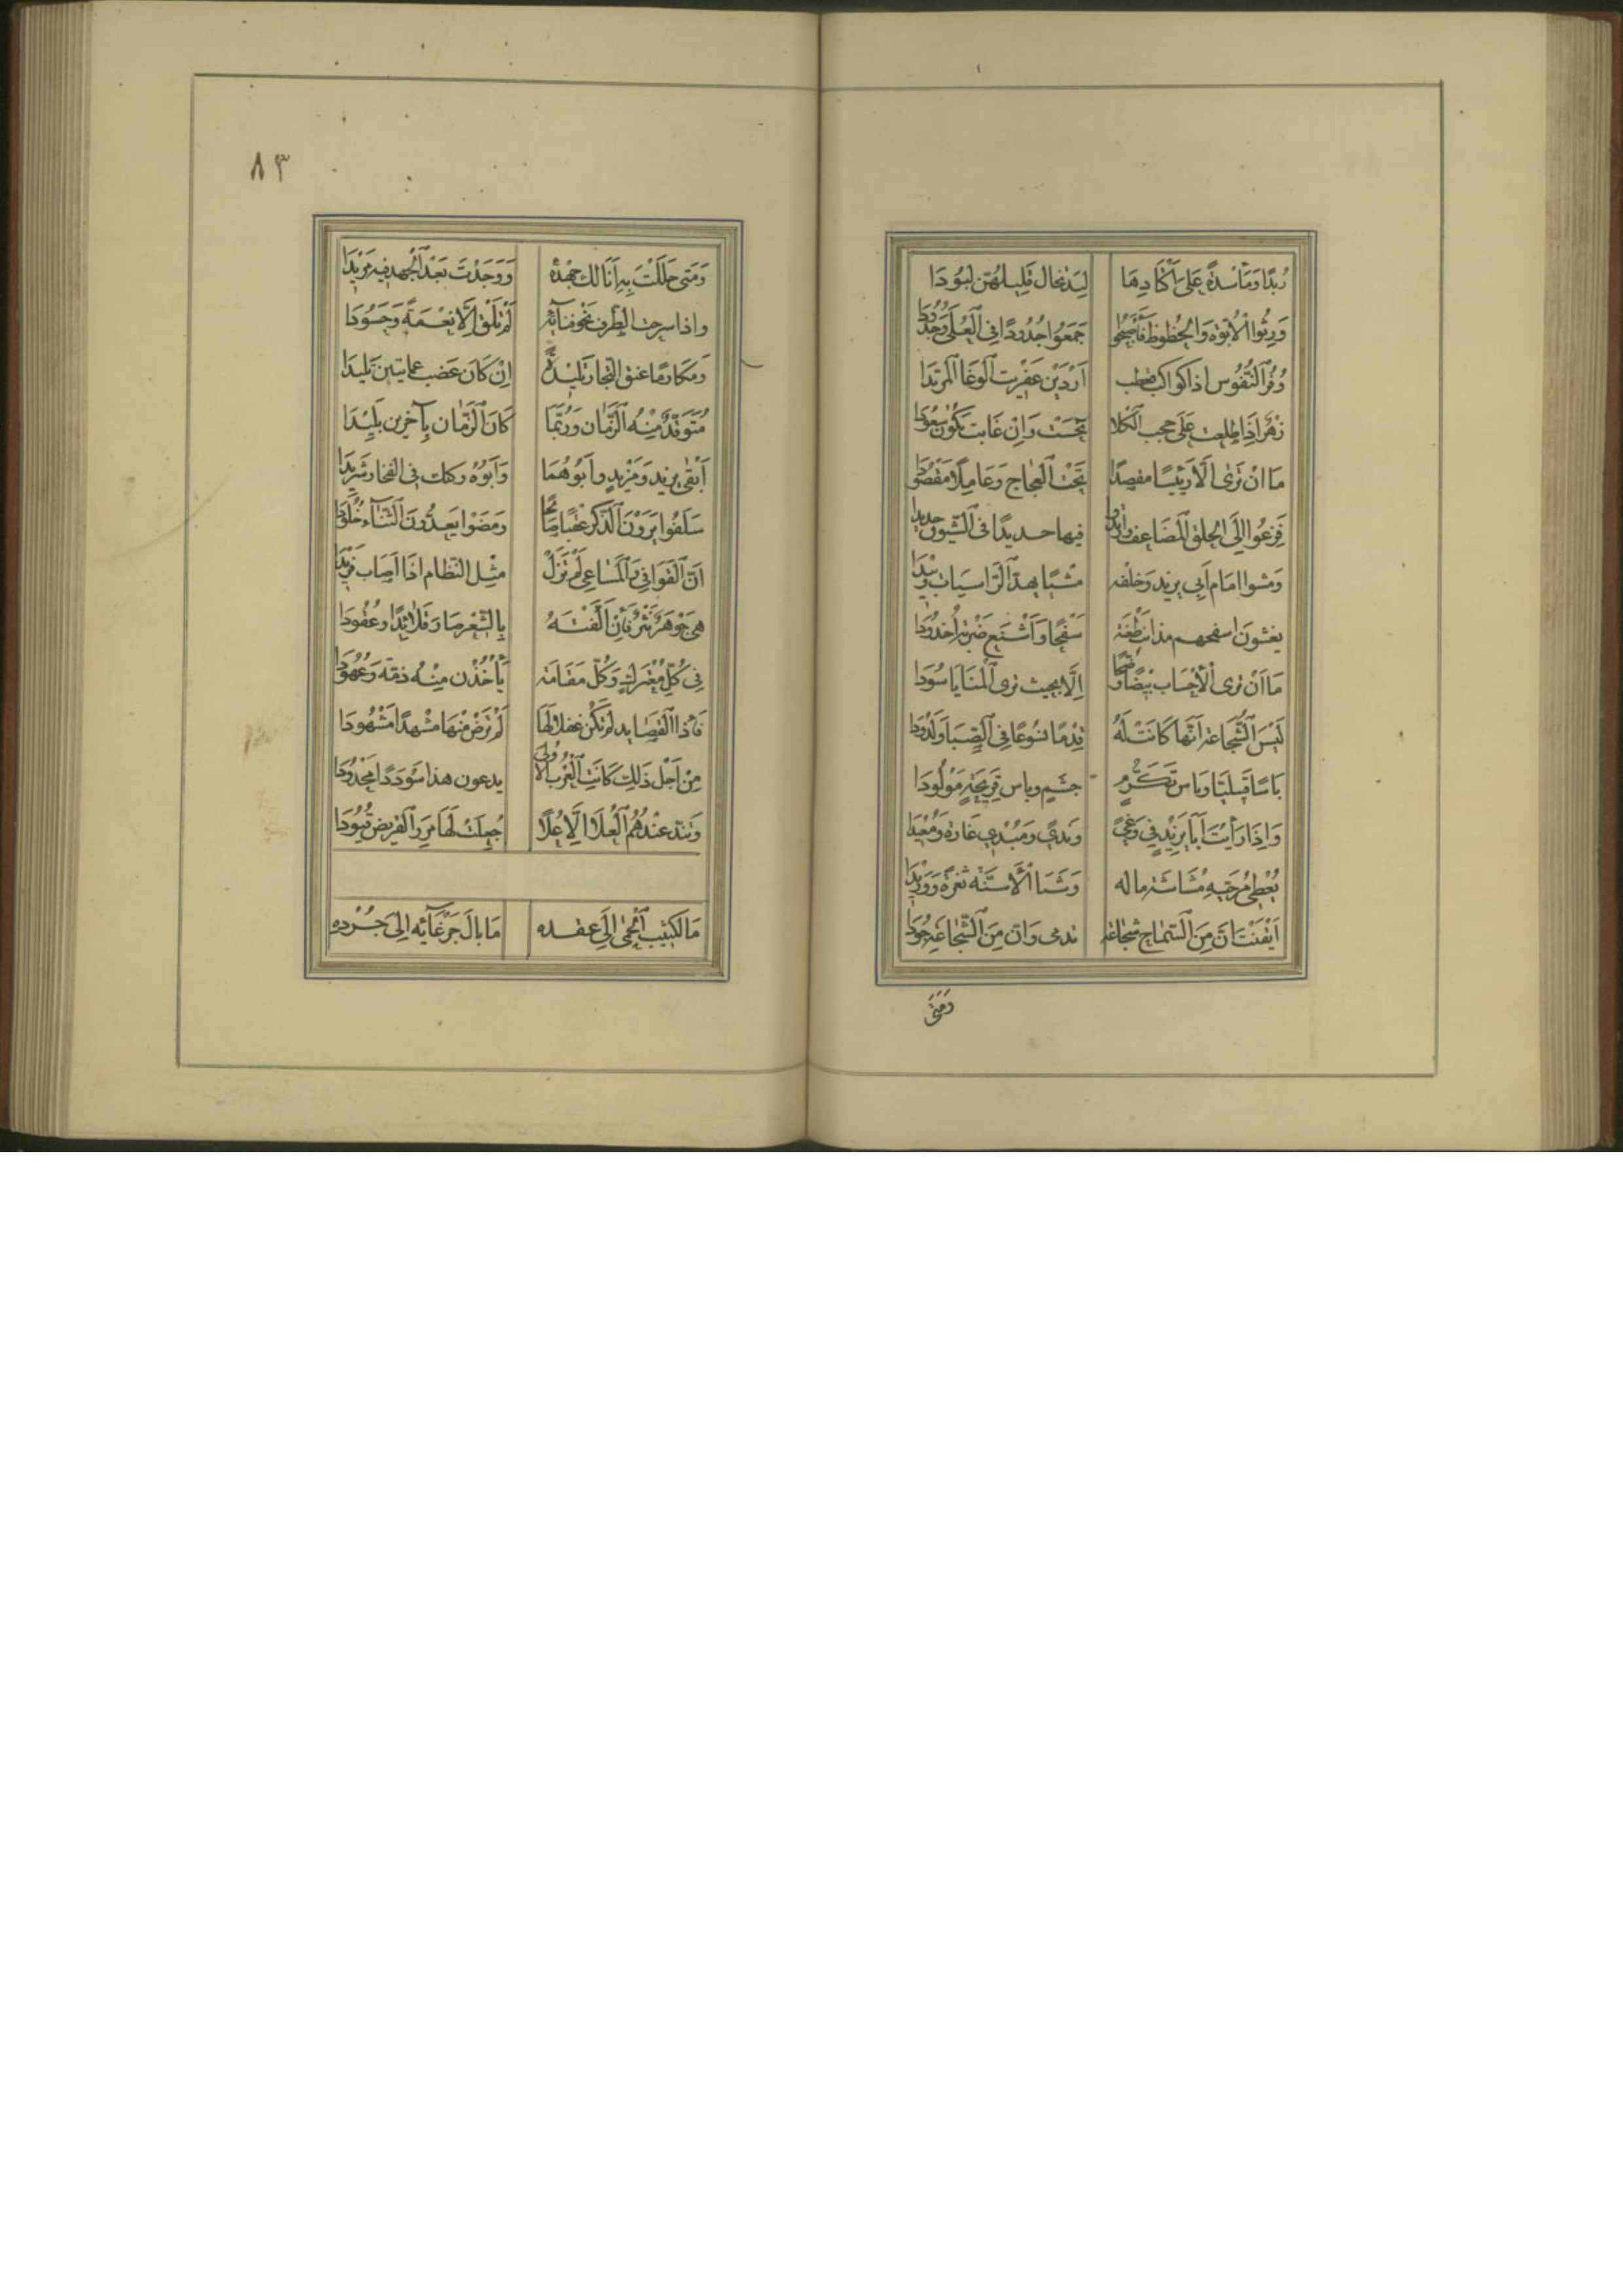 رُبْدًا وَمَأْسَدَةً عَلَى أَكْتَادِهَا لِبَدٌ تخال فَلِيلهُنّ لُبُودَا
وَرِثُوا الْأُبُوَّةَ وَالْحُظُوظَ فَأَصْبَحُوا جَمَعُوا جُدُودًا فِي الْعُلَى وَجُدُودَا
وُقُرُ النُّفُوس اذا كواكب قعضب أَرْدَيْن عِفْرِيت الْوَغَا الْمَرِيدَا
زُهْرًا إِذَا طلعت عَلَى حجب الْكُلا نحست وَإِنْ غَابت تَكُون سُعُودَا
مَا انْ تَرَى الَّا رَئِيسًا مقصدًا تَحْتَ الْعَجَاجِ وَعَامِلًا مَقْصُودَا
فَزِعُوا إِلَى الْحلق الْمُضَاعف وارتدوا فيها حديدًا فى الشّيون حديدا
وَمشوا امَام أَبِي يزيد وَخلْفه مَشْيًا يهدّ الرَّاسيات وئيدا
يغشون اسفحهم مذانب طَعْنَة سَفْحًا وَأَشْنَع ضَرْبَة أُخْدُودَا
مَا أَنْ ترى الْأَحْسَاب بِيضًا وُضَّحًا إِلَّا بحيث ترى الْمَنَايَا سُودَا
لَبِسَ الشَّجَاعة أَنَّهَا كَانَتْ لَهُ قِدْمًا نشوعًا فِي الصِّبَا وَلَدُودَا
بَاسًا قَبِيليًّا وباس تَكَرُّمٍ جشم وباس قَرِيحَةٍ مَوْلُودَا
وَإِذَا رَأَيْتَ أَبَا يَزِيدٍ فِي وَغًى وندًى وَمُبْدِي غَارَة وَمُعِيدَا
يُعْطِي مُرَجّيهِ مُشَاشَة ماله وَشَبَا الْأَسنَّة ثغرَة وَوَرِيدَا
أَيْقَنْتَ أَنَّ مِنَ السَّمَاح شجاعَة تدمى وَان مِنَ الشَّجَاعَة جُودَا
وَمَتَى
٨٣
وَمَتَى حَلَلْتَ بِهِ أَنَالك جهْدهُ وَوَجَدْتَ بَعْدَ الْجهد فِيه مَزِيدَا
واذا سرحت الطَّرف نَحْو فنائه لَمْ تَلْقَ إِلَّا نِعْمَةً وَحَسُودَا
وَمَكَارِمًا عنق النّجار تَلِيدَةً إِنْ كَانَ عَضب عمايتين تَلِيدَا
مُتَوَقِّدٌ مِنْهُ الزَّمَان وَرُبَّمَا كَانَ الزَّمَان بِآخَرِين بَلِيدَا
أَبْقَى يزيد وَمَزْيَدٍ وأَبُوهُمَا وَأَبُوهُ ركنك فى الفخار شَدِيدَا
سَلَفُوا يَرَوْنَ الذِّكر عقبًا صَالِحًا وَمَضَوْا يَعدُّونَ الثَّنَاء خُلُودَا
انّ الْقَوَافِي وَالْمَسَاعِي لَمْ تَزَلْ مثل النظام اذَا أَصَاب فَرِيدَا
هِيَ جَوْهَرٌ نَثْرٌ فَإِنْ أَلَّفْتَهُ بِالشّعْر صَارَ قَلَائِدًا وعُقُودَا
فِي كُلِّ مُعْتَركٍ وَكُلّ مَقَامَة يَأْخُذْن مِنْهُ ذمّة وَعُهُودَا
فَإِذَا الْقَصَايد لَمْ تَكُنْ خفراءَهَا لَمْ تَرْضَ مِنْهَا مَشْهدًا مَشْهُودَا
مِنْ أَجْل ذَلِكَ كَانَتِ الْعُرْب الأُولَى يدعون هذا سُودَدًا مَحْدُودَا
وَتَنِدّ عِنْدَهُمُ الْعُلَا الَّا عُلًا جُعِلَتْ لَهَا مِرَر الْقَرِيض قُيُودَا
مَا لكثيب الْحِمَى إِلَى عقده مَا بَالُ جَرْعَائِه إِلَى جَرَدِه